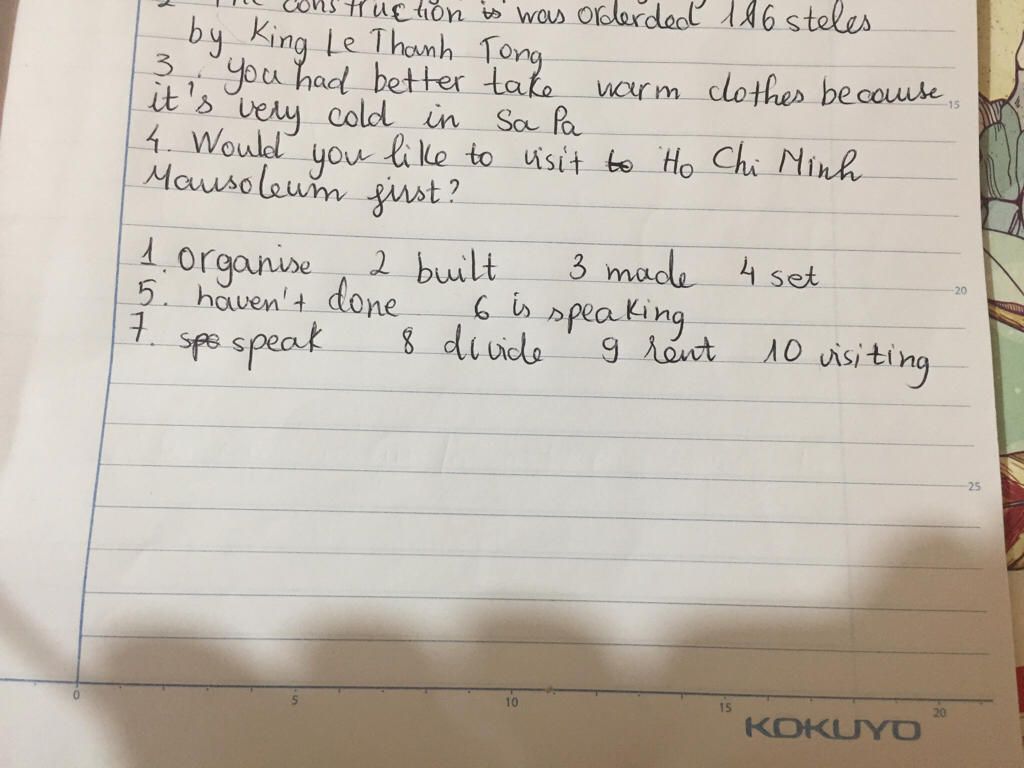 2 The construction is was orderded 116 steles
by King Le Thanh Tong
3. you had better take warm clothes because
it's very cold in Sa Pa
4. Would you like to visit to Ho Chi Minh
Mausoleum first?
1. organise 2 built 3 made 4 set
5. haven't done 6 is speaking
7. spe speak 8 divide 9 rent 10 visiting
15
20
25
0 5 10 15 20
KOKUYO